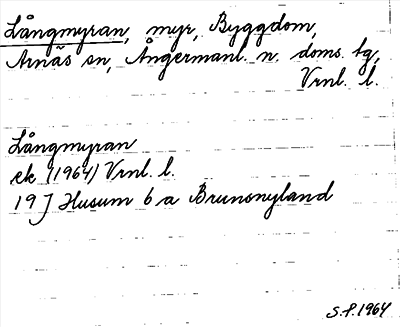 Långmyran, myr, Byggdom,
Arnäs sn, Ångermanl. n. doms. tg,
Vrnl. l.
Långmyran
ek (1964) Vrnl. l.
19 J Husum 6 a Brunonyland
S.P. 1964